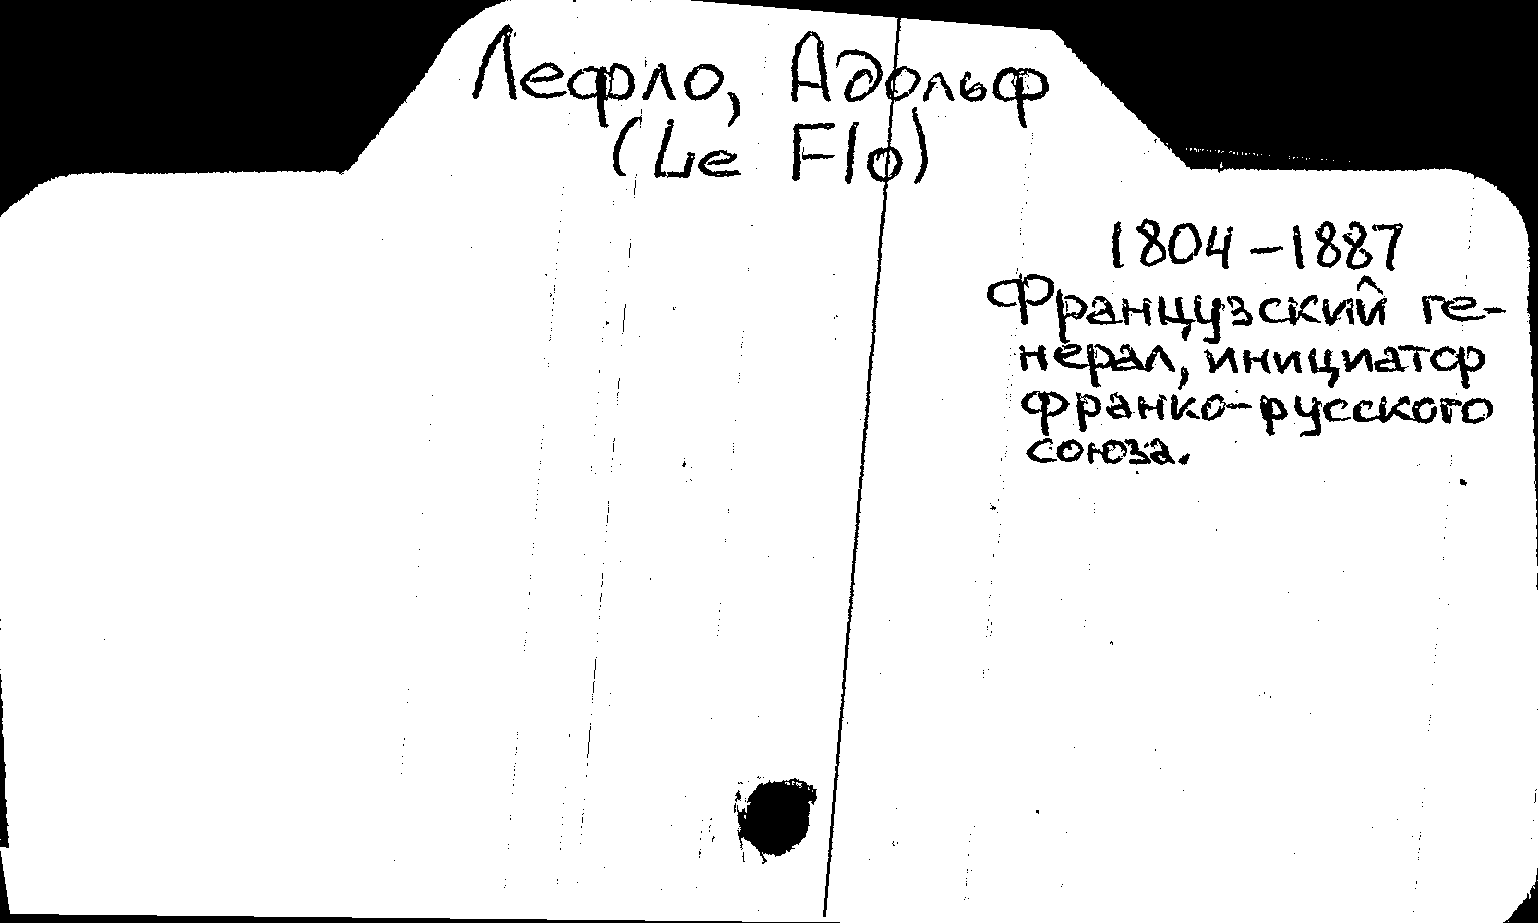 Лефло, Адольф
(Le Flo)
1804-1887
Французский ге-
нерал, инициатор
франко-русского
союза.